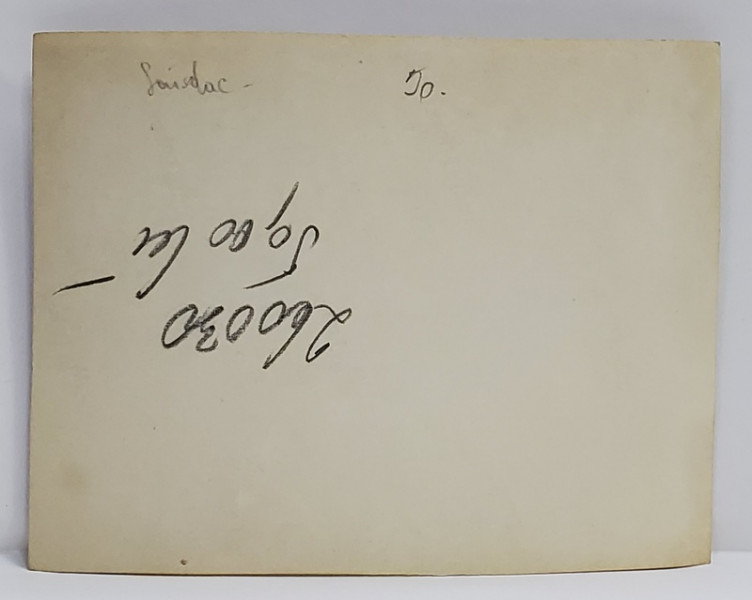 50.
260030
50,00 lei